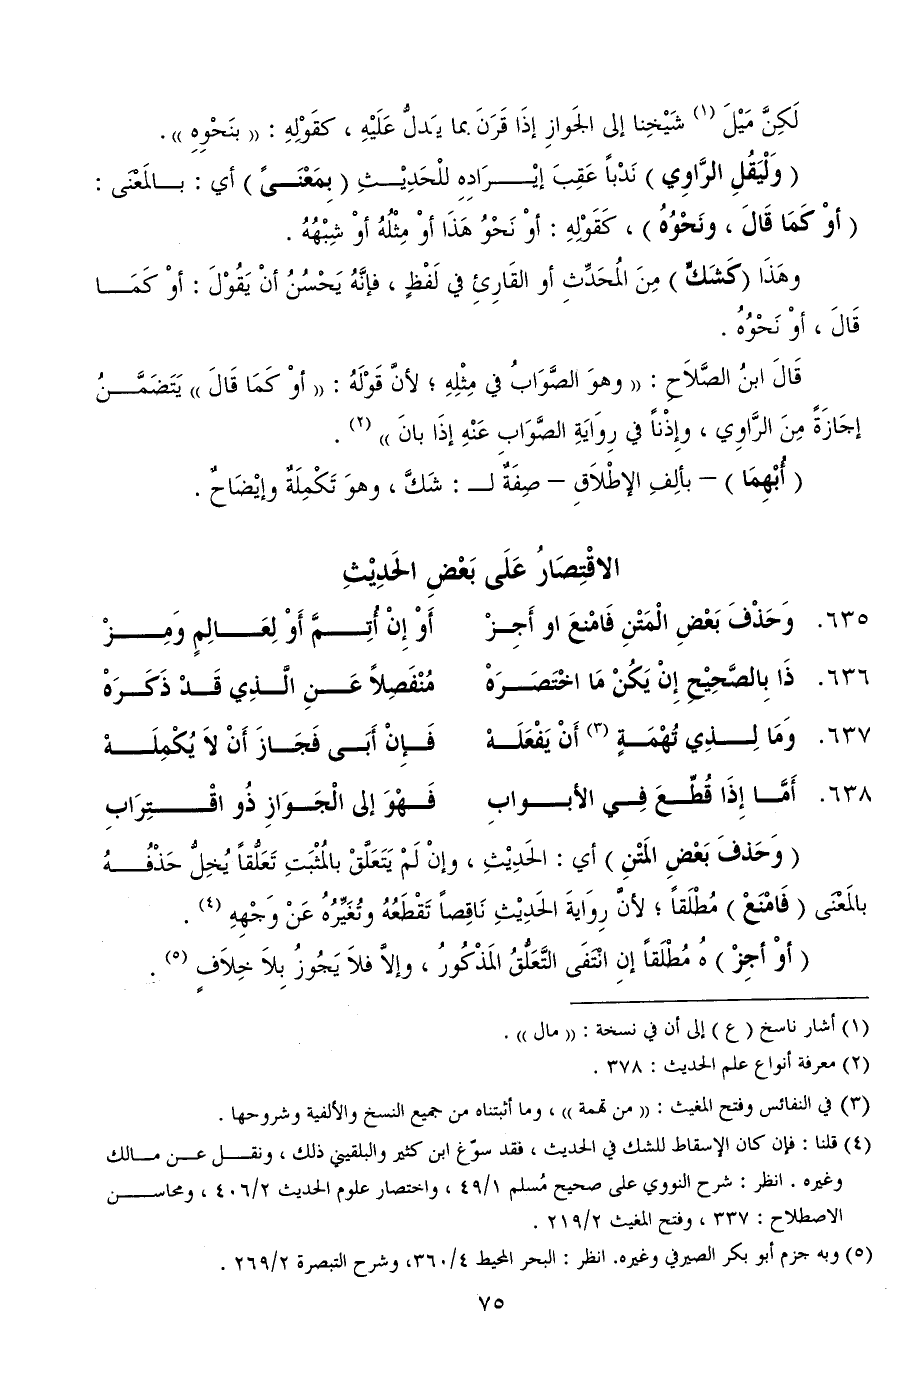 لَكِنَّ مَيْلَ (١) شَيْخِنا إلى الجَوازِ إذَا قَرَنَ بما يَدلُّ عَلَيْهِ ، كقَولِهِ : (( بنَحْوِهِ )) .
( وَلْيَقُلِ الرَّاوِي ) نَدْباً عَقِبَ إيْـــرَادِهِ للْحَدِيْـــثِ ( بِمَعْنَـــىً ) أي : بـــالمَعْنَى :
( أوْ كَمَا قَالَ ، ونَحْوُهُ ) ، كَقَولِهِ : أوْ نَحْوُ هَذَا أوْ مِثْلُهُ أوْ شِبْهُهُ .
وهَذَا (كَشَكٍّ ) مِنَ المُحَدِّثِ أو القَارِئِ في لَفْظٍ ، فإنَّهُ يَحْسُنُ أنْ يَقُوْلَ : أوْ كَمَـــا
قَالَ ، أوْ نَحْوُهُ .
قَالَ ابنُ الصَّلاَحِ : (( وهوَ الصَّوَابُ في مِثْلِهِ ؛ لأنَّ قَوْلَهُ : (( أوْ كَمَا قَالَ )) يَتَضَمَّـــنُ
إجَازَةً مِنَ الرَّاوِي ، وإذْناً في رِوايَةِ الصَّوَابِ عَنْهِ إذَا بانَ )) (٢) .
( أُبْهِمَا ) – بألِفِ الإطْلاَقِ – صِفَةٌ لـــ : شَكَّ ، وهوَ تَكْمِلَةٌ وإيْضَاحٌ .
الاقْتِصَارُ عَلَى بَعْضِ الحَدِيْثِ
٦٣٥. وَحَذْفَ بَعْضِ الْمَتْنِ فَامْنَعَ او أَجِـزْ أَوْ إِنْ أُتِـــمَّ أَوْ لِعَـــالِمٍ وَمِـــزْ
٦٣٦. ذَا بِالصَّحِيْحِ إِنْ يَكُنْ مَا اخْتَصَـــرَهْ مُنْفَصِلاً عَـــنِ الَّـــذِي قَـــدْ ذَكَـــرَهْ
٦٣٧. وَمَا لِـــذِي تُهْمَـــةٍ (٣) أَنْ يَفْعَلَـــهْ فَـــإِنْ أَبَـــى فَجَـــازَ أَنْ لاَ يُكْمِلَـــهْ
٦٣٨. أَمَّـــا إِذَا قُطِّـــعَ فِـــي الأبـــوابِ فَـــهْوَ إلى الْجَـــوَازِ ذُو اقْـــتِرَابِ
( وَحَذفَ بَعْضِ المَتْنِ ) أي : الحَدِيْثِ ، وإنْ لَمْ يَتَعَلَّقْ بالمُثْبَتِ تَعَلُّقاً يُخِلُّ حَذْفُـــهُ
بالمَعْنَى ( فَامْنَعْ ) مُطْلَقاً ؛ لأنَّ رِوايَةَ الحَدِيْثِ نَاقِصاً تَقْطَعُهُ وتُغَيِّرُهُ عَنْ وَجْهِهِ (٤) .
( أوْ أجِزْ ) هُ مُطْلَقاً إنِ انْتَفَى التَّعَلُّقُ المَذْكُورُ ، وإلاَّ فلاَ يَجُوزُ بِلاَ خِلاَفٍ (٥) .
(١) أشار ناسخ ( ع ) إلى أن في نسخة : (( مال )) .
(٢) معرفة أنواع علم الحديث : ٣٧٨ .
(٣) في النفائس وفتح المغيث : (( من تهمة )) ، وما أثبتناه من جميع النسخ والألفية وشروحها .
(٤) قلنا : فإن كان الإسقاط للشك في الحديث ، فقد سوّغ ابن كثير والبلقيني ذلك ، ونقـــل عـــن مـــالك
وغيره . انظر : شرح النووي على صحيح مُسلم ٤٩/١ ، واختصار علوم الحديث ٤٠٦/٢ ، ومحاســـن
الاصطلاح : ٣٣٧ ، وفتح المغيث ٢١٩/٢ .
(٥) وبه جزم أبو بكر الصيرفي وغيره. انظر : البحر المحيط ٣٦٠/٤، وشرح التبصرة ٢٦٩/٢ .
٧٥